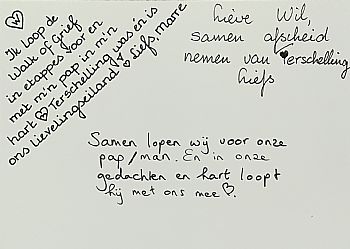 Ik loop de
Walk of Grief
in etappes voor en
met m'n pap in m'n
hart ♡ Terschelling was én is
ons lievelingseiland ♡ Liefs, Marre
Lieve Wil,
samen afscheid
nemen van Terschelling
Liefs
Samen lopen wij voor onze
pap/man. En in onze
gedachten en hart loopt
hij met ons mee ♡.